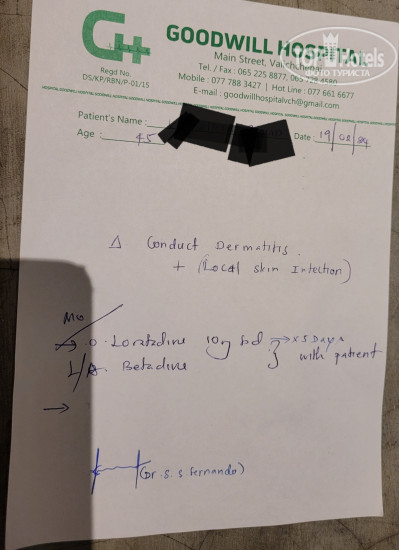 TopHotels
ФОТО ТУРИСТА
G+
GOODWILL HOSPITAL
Main Street, Valichchenai
Tel. / Fax : 065 225 8877, 065
Mobile : 077 788 3427 | Hot Line : 077 661 6677
E-mail : goodwillhospitalvch@gmail.com
Regd No.
DS/KP/RBN/F-01/15
Patient's Name :
Age : 45
Date : 19/02/24
Δ Conduct Dermatitis.
+ (Local skin Infection)
Mo
→ O. Loratadine 10g bd → x 5 Days
L/A. Betadine } with patient
→
(Dr. S. S Fernando)